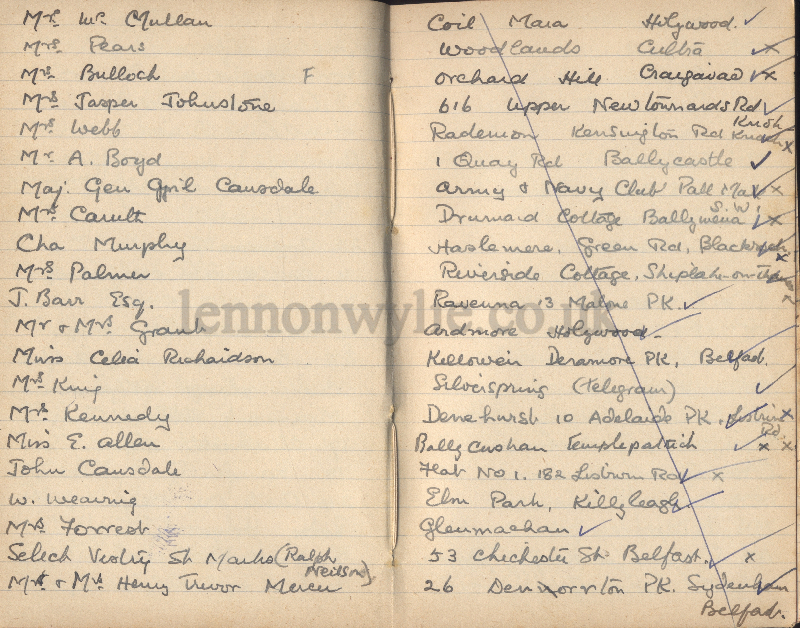 Mrs. Mc. Mullan Coil Mara Holywood.
Mrs. Pears Woodlands Cultra
Mrs. Bulloch F Orchard Hill Craigavad
Mrs. Jasper Johnstone 616 Upper Newtownards Rd
Mrs. Webb Rademon Kensington Rd Knock
Mr. A. Boyd 1 Quay Rd Ballycastle
Maj. Gen Cansdale Army & Navy Club Pall Mall
S.W.1
Mrs. Caruth Drumard Cottage Ballymena
Cha Murphy Haslemere, Green Rd, Blackrock
Mrs. Palmer Riverside Cottage, Shiplake-on-Thames
J. Barr Esq. Ravenna 13 Malone PK.
Mr & Mrs. Grant Ardmore Holywood
Miss Celia Richardson Killowen Deramore PK, Belfast.
Mrs King Silverspring (telegram)
Mrs. Kennedy Denehurst 10 Adelaide PK, Lisburn
Rd.
Miss E. Allen Ballycushan Templepatrick
John Cansdale Flat No 1. 182 Lisburn Rd
W. Wearing Elm Park, Killyleagh
Mrs Forrest Glenmachan
Select Vestry St Marks (Ralph 53 Chichester St. Belfast.
Neilson)
Mr & Mrs Henry Trevor 26 PK. Sydenham
Belfast.
lennonwylie.co.uk